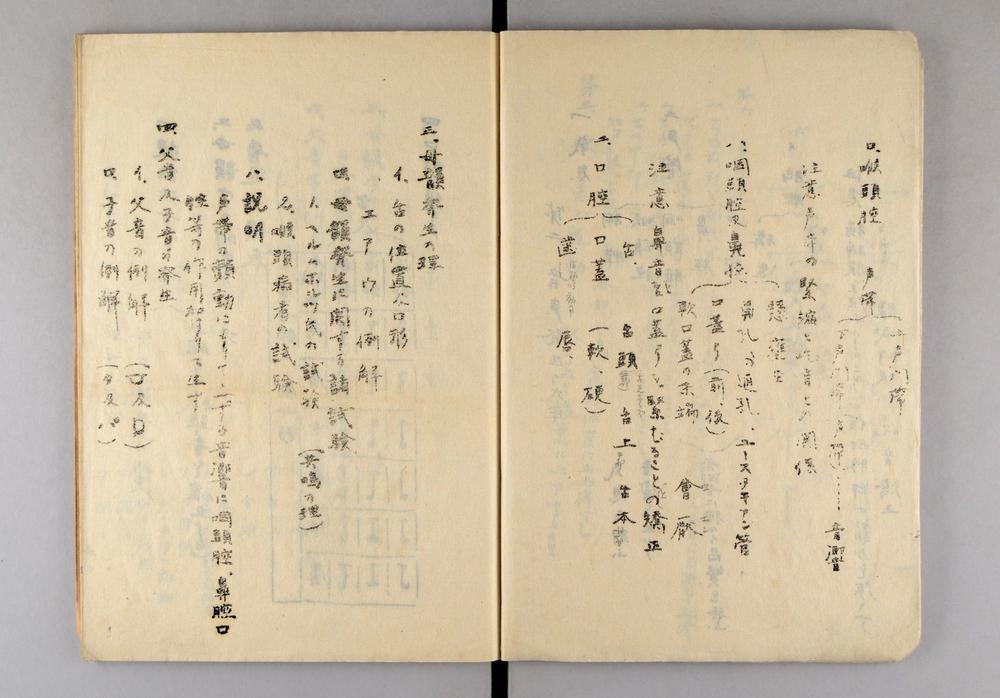 ロ、喉頭腔 声帯
上声門帯
下声門帯(声帯)……音響
注意 声帯の緊縮と音との関係
ハ、咽頭腔及鼻腔
懸壅垂
鼻孔の通孔、ユースタキアン管
口蓋より(前、後)
軟口蓋の末端 會厭
注意 鼻音が口蓋より 緊むることの矯正
ニ、口腔 口蓋(軟、硬)
舌、舌頭 舌上 舌本
歯 唇、
三、母韻発生の理
イ、舌の位置及口形
、エアウの例解
ロ、母韻発生に関する諸試験
1、ヘルムホルツ氏の試験(共鳴の理)
2、喉頭病者の試験
ハ、説明
声帯の顫動によりて生ずる音響に咽頭腔、鼻腔口
腔等の作用加はりて生ず
四、父音及子音の発生
イ、父音の例解
ロ、子音の例解 (タ及パ)